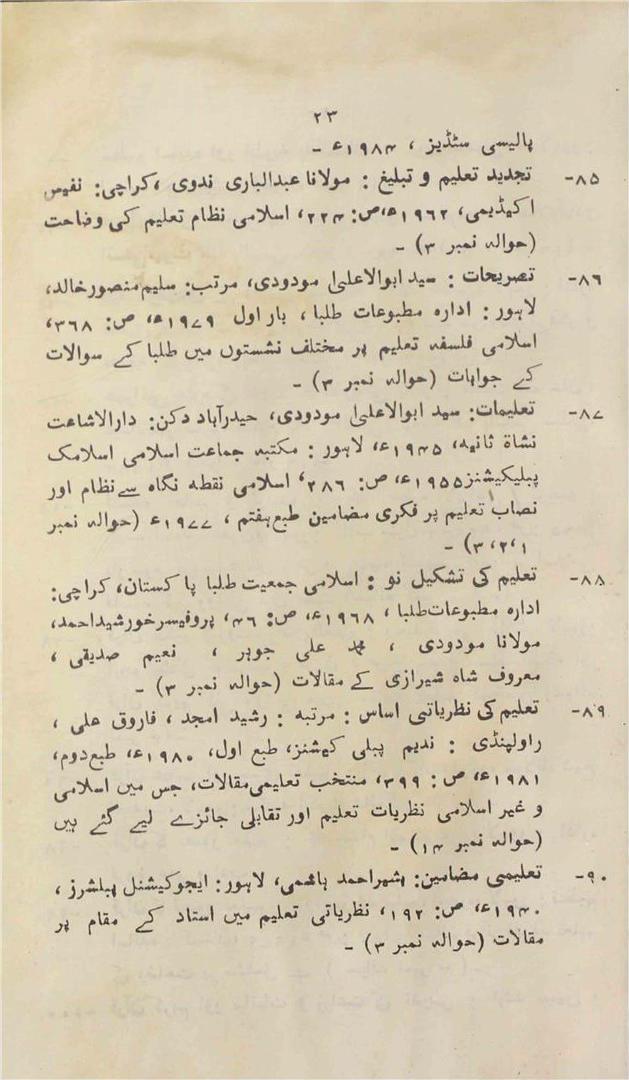 ۲۳
پالیسی سٹڈیز ، ۱۹۸۴ء -
۸۵- تجدید تعلیم و تبلیغ : مولانا عبدالباری ندوی ،کراچی: نفیس
اکیڈیمی، ۱۹۶۲ء،ص: ۲۲۴، اسلامی نظام تعلیم کی وضاحت
(حوالہ نمبر ۳) -
۸۶- تصریحات : سید ابوالاعلیٰ مودودی، مرتب: سلیم منصور خالد،
لاہور : ادارہ مطبوعات طلبا ، بار اول ۱۹۷۹ء، ص: ۳۶۸،
اسلامی فلسفہ تعلیم پر مختلف نشستوں میں طلبا کے سوالات
کے جوابات (حوالہ نمبر ۳) -
۸۷- تعلیمات: سید ابوالاعلیٰ مودودی، حیدرآباد دکن: دارالاشاعت
نشاۃ ثانیہ، ۱۹۴۵ء، لاہور : مکتبہ جماعت اسلامی اسلامک
پبلیکیشنز ۱۹۵۵ء، ص: ۲۸۶، اسلامی نقطہ نگاہ سے نظام اور
نصاب تعلیم پر فکری مضامین طبع ہفتم ، ۱۹۷۷ء (حوالہ نمبر
۱،۲،۳) -
۸۸- تعلیم کی تشکیل نو : اسلامی جمعیت طلبا پاکستان، کراچی:
ادارہ مطبوعات طلبا ، ۱۹۶۸ء، ص: ۴۶، پروفیسر خورشید احمد،
مولانا مودودی ، محمد علی جوہر ، نعیم صدیقی ،
معروف شاہ شیرازی کے مقالات (حوالہ نمبر ۳) -
۸۹- تعلیم کی نظریاتی اساس : مرتبہ : رشید امجد ، فاروق علی ،
راولپنڈی : ندیم پبلی کیشنز، طبع اول، ۱۹۸۰ء، طبع دوم،
۱۹۸۱ء، ص : ۳۹۹، منتخب تعلیمی مقالات، جس میں اسلامی
و غیر اسلامی نظریات تعلیم اور تقابلی جائزے لیے گئے ہیں
(حوالہ نمبر ۱۴) -
۹۰- تعلیمی مضامین: بشیر احمد ہاشمی، لاہور: ایجوکیشنل پبلشرز ،
۱۹۴۰ء، ص: ۱۹۲، نظریاتی تعلیم میں استاد کے مقام پر
مقالات (حوالہ نمبر ۳) -